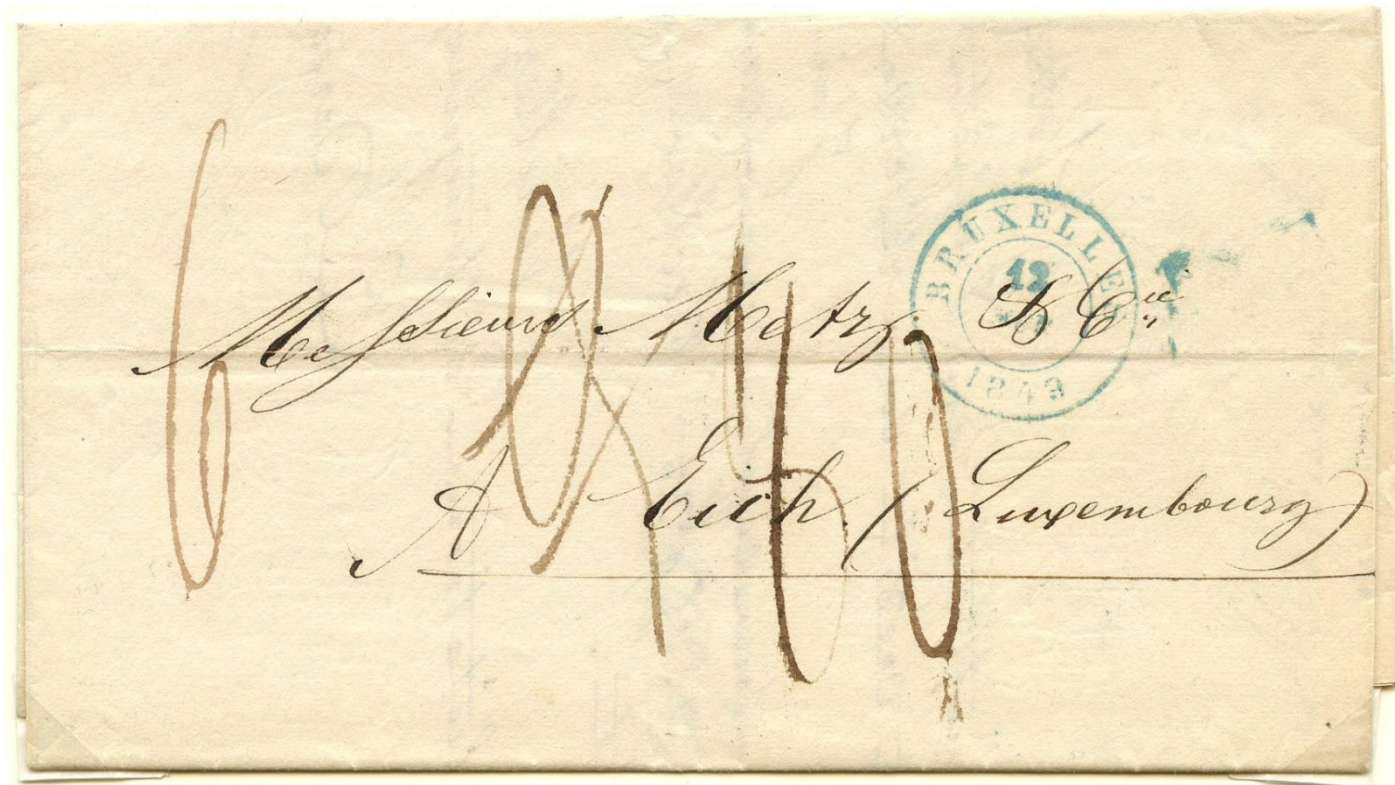 BRUXELLES
12
1849
Messieurs Metz & Cie
A Eich (Luxembourg)